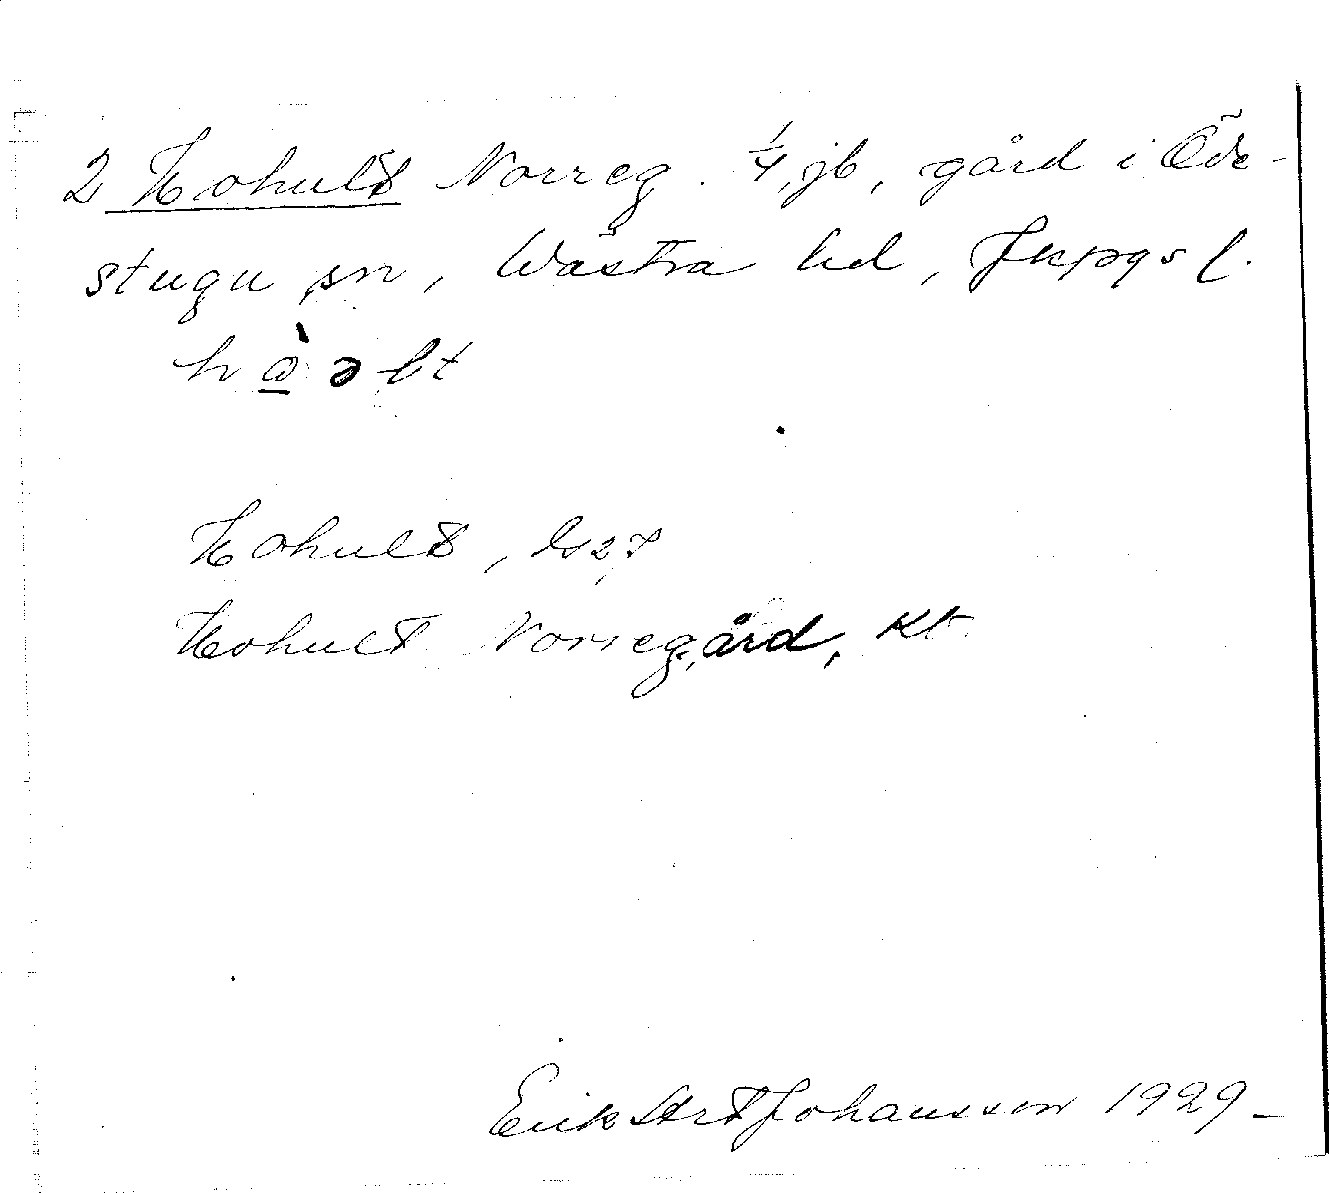 2 Hohult Norreg. 1/4 jb, gård i Öde-
stugu sn, Västra hd, Jkpgs l.
hɑ̀əlt
Hohult,
Hohult Norregård, Kt
Erik Johansson 1929